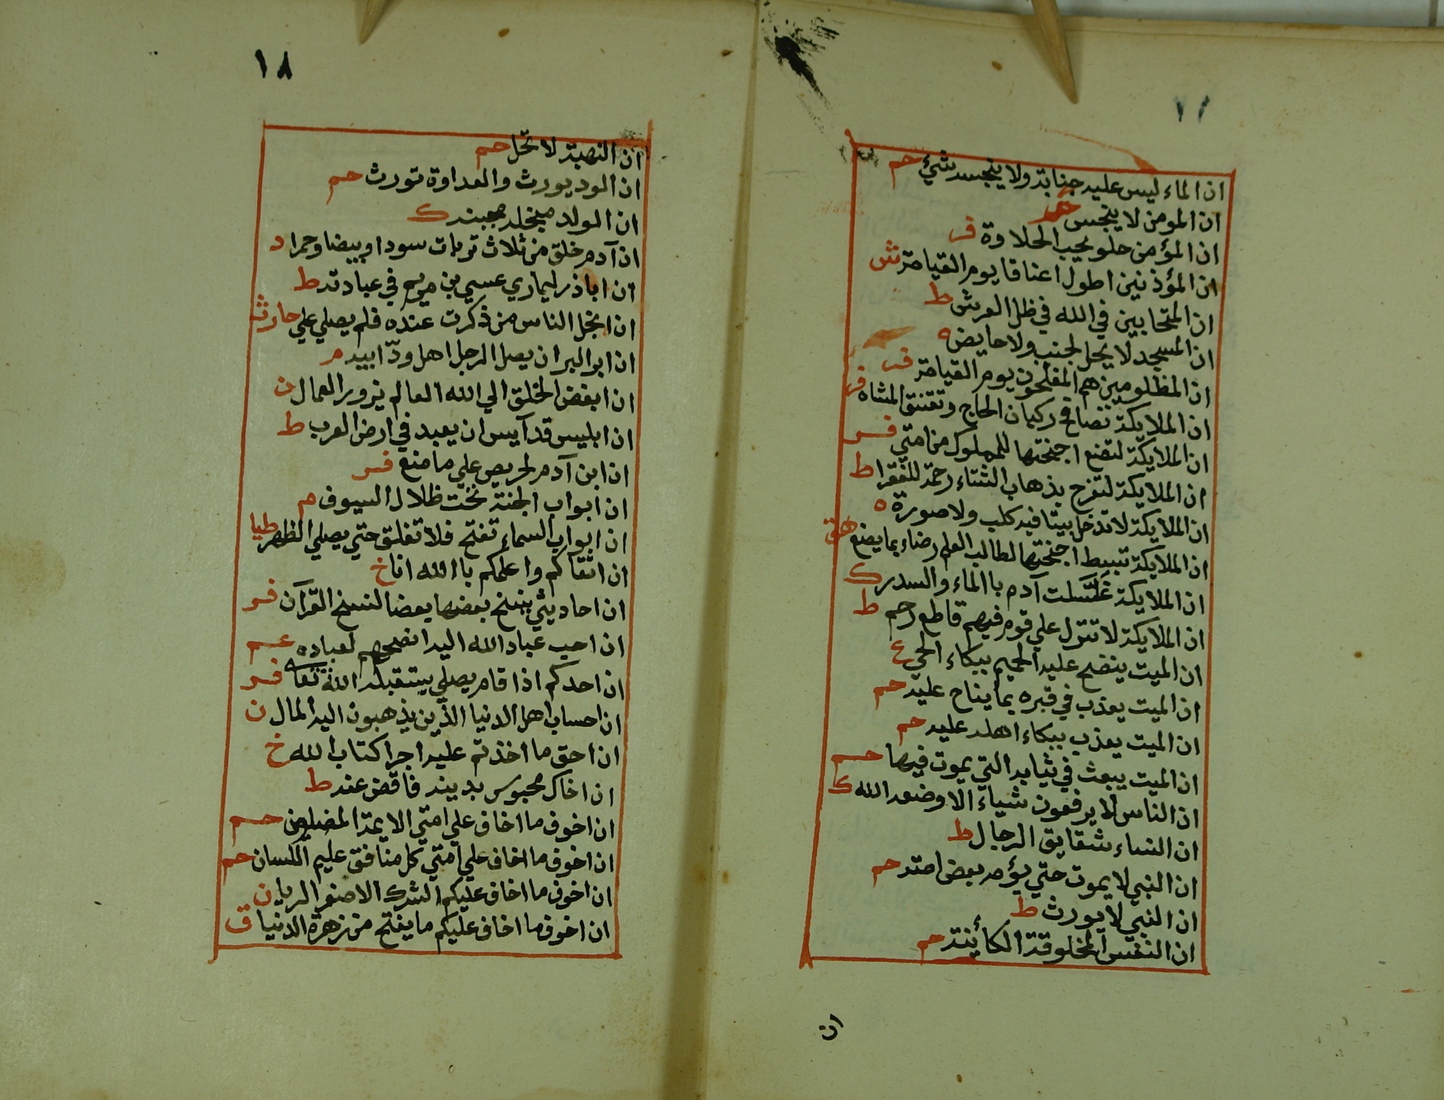 ان الماء ليس عليه جنابة ولا ينجسه شيء حم
ان المومن لا ينجس
ان المؤمن حلو يحب الحلاوة فر
ان المؤذنين اطول اعناقا يوم القيامة ش
ان المتحابين في الله في ظل العرش ط
ان المسجد لا يحل لجنب ولا حايض ه
ان المظلومين هم المفلحون يوم القيامة فر
ان الملايكة تصافح ركبان الحاج وتعتنق المشاه فر
ان الملايكة لتضع اجنحتها للمملوك من امتي فر
ان الملايكة لتفرح بذهاب الشتاء رحمة للفقرا ط
ان الملايكة لا تدخل بيتا فيه كلب ولا صورة ه
ان الملايكة تبسط اجنحتها لطالب العلم رضاء بما يضع هق
ان الملايكة غسّلت آدم بالماء والسدر ك
ان الملايكة لا تنزل علي قوم فيهم قاطع رحم ط
ان الميت ينضح عليه الحميم ببكاء الحي ع
ان الميت يعذب في قبره بما يناح عليه حم
ان الميت يعذب ببكاء اهله عليه حم
ان الميت يبعث في ثيابه التي يموت فيها حم
ان الناس لا يرفعون شياء الا وضعه الله ك
ان النساء شقايق الرجال ط
ان النبي لا يموت حتي يؤمه بعض امته حم
ان النبي لا يورث ط
ان النفس المخلوقة الكأينة حم
ان
١٨
ان النهبة لا تحل حم
ان الود يورث والعداوة تورث حم
ان الولد مبخلة مجبنة ك
ان آدم خلق من ثلاث تربات سودا وبيضا وحمرا د
ان اباذر ليماري عسي بن مريم في عبادته ط
ان ابخل الناس من ذكرت عنده فلم يصلي علي حارث
ان ابر البر ان يصل الرجل اهل ودّ ابيه م
ان ابغض الخلق الي الله العالم يزور العمال ن
ان ابليس قد آيس ان يعبد في ارض العرب ط
ان ابن آدم لحريص علي ما منع فر
ان ابواب الجنة تحت ظلال السيوف م
ان ابواب السماء تفتح فلا تغلق حتي يصلي الظهر طيا
ان اتقاكم واعلمكم باالله انا خ
ان احاديثي ينسخ بعضها بعضا لنسخ القرآن فر
ان احب عباد الله اليه انصحهم لعباده عم
ان احدكم اذا قام يصلي يستقبله الله تعا فر
ان احساب اهل الدنيا الذين يذهبون اليه المال ن
ان احق ما اخذتم عليه اجرا كتاب الله خ
ان اخاك محبوس بدينه فاقض عنه ط
ان اخوف ما اخاف علي امتي الايمة المضلون حم
ان اخوف ما اخاف علي امتي كل منافق عليم اللسان حم
ان اخوف ما اخاف عليكم الشرك الاصغر الريا ن
ان اخوف ما اخاف عليكم ما يفتح من زهرة الدنيا ق